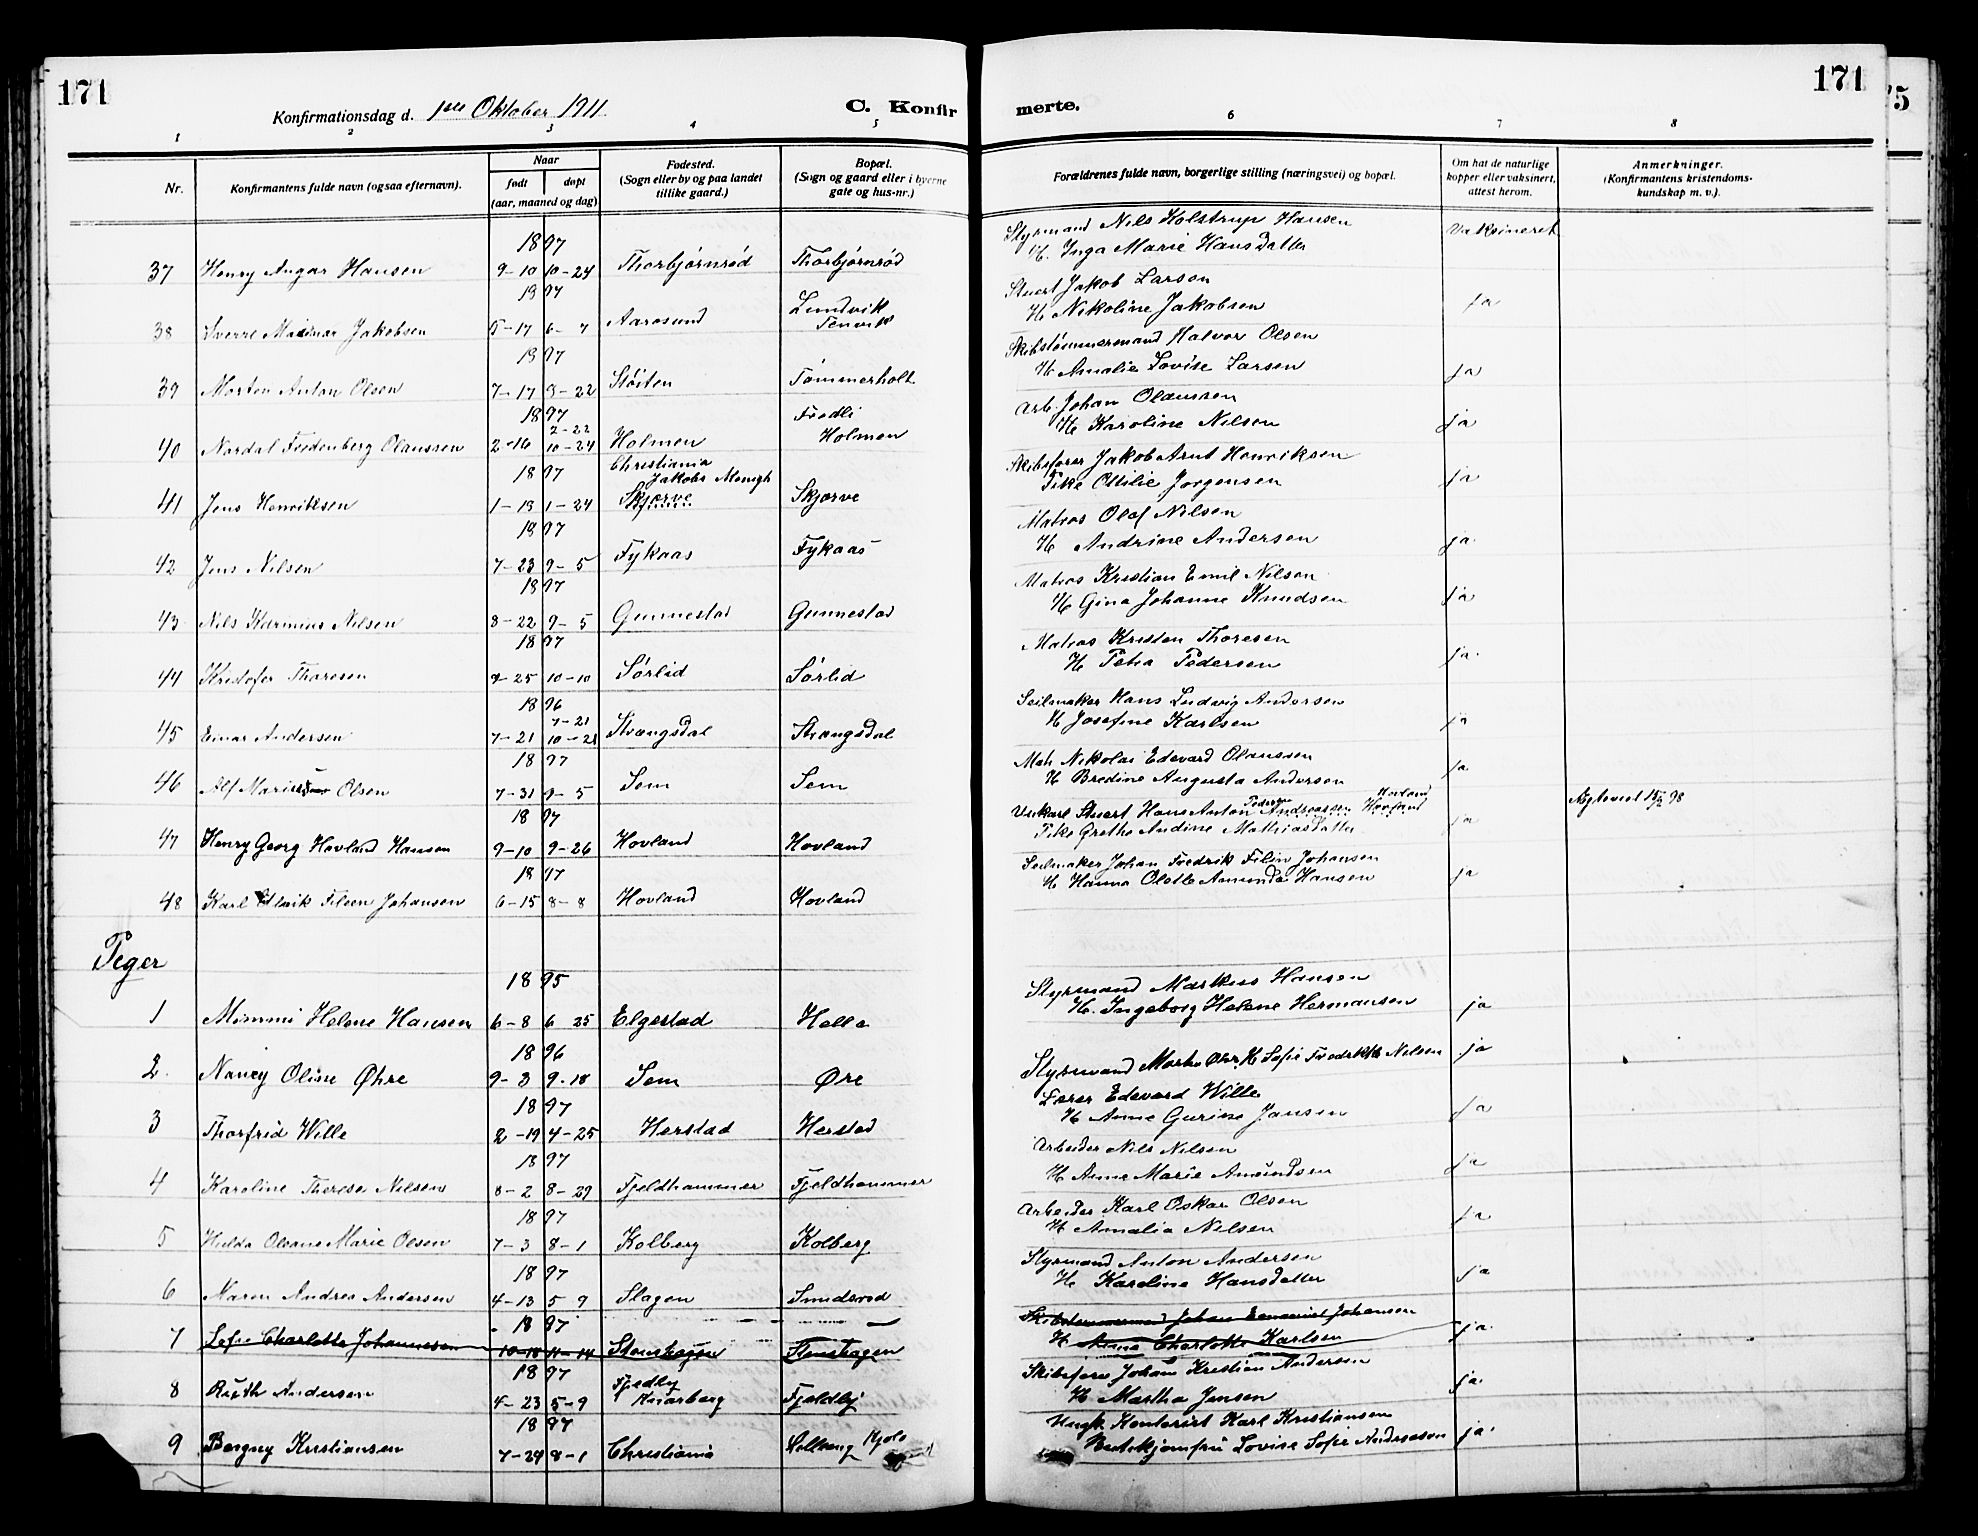 171
Konfirmationsdag d. 1ste Oktober 1911.
C. Konfir
merte.
171
75
1 2 3 4 5 6 7 8
Nr.
Konfirmantens fulde navn (ogsaa efternavn).
Naar
født døpt
(aar, maaned og dag)
Fødested.
(Sogn eller by og paa landet
tillike gaard.)
Bopæl.
(Sogn og gaard eller i byerne
gate og hus-nr.)
Forældrenes fulde navn, borgerlige stilling (næringsvei) og bopæl.
Om hat de naturlige
kopper eller vaksinert,
attest herom.
Anmerkninger.
(Konfirmantens kristendoms-
kundskap m. v.).
1897
Styrmand Nils Holstrup Hansen vaksineret
37 Henry Angar Hansen 9-10 10-24 Thorbjørnrød Thorbjørnrød H. Inga Marie Hansdatter
1897
Stuert Jakob Larsen
Lundvik
38 Sverre Jakobsen 5-17 6-7 Aarosund Tenvik H. Nikoline Jakobsen ja
1897
Skibstømmermand Halvor Olsen
39 Morten Anton Olsen 7-17 8-22 Støiten Tømmerholt H. Amalie Lovise Larsen ja
1897
2-22
Fredli
Arb. Johan Olaussen
40 Nordal Fredenberg Olaussen 2-16 10-24 Holmen Holmen H. Karoline Nilsen ja
1897
Christiania
Jakobs Menigh
Skibsfører Jakob Arnt Henriksen
41 Jens Henriksen 1-13 1-24 Skjørve Skjørve Pike Ottilie Jørgensen ja
1897
Matros Olaf Nilsen
42 Jens Nilsen 7-23 9-5 Fykaas Fykaas H. Andrine Andersen ja
1897
Matros Kristian Emil Nilsen
43 Nils Karinius Nilsen 8-22 9-5 Gunnestad Gunnestad H. Gina Johanne Knudsen ja
1897
Matros Kristen Thoresen
44 Kristofer Thoresen 9-25 10-10 Sørlid Sørlid H. Petra Pedersen ja
1896
7-21
Seilmaker Hans Ludvig Andersen
45 Einar Andersen 7-21 10-21 Strængsdal Strængsdal H. Josefine Karlsen ja
1897
Matr. Nikolai Edevard Olaussen
46 Alf Olsen 7-31 9-5 Sem Sem H. Bredine Augusta Andersen ja
1897
Ungkarl Stuert Hans Anton Pedersen Andreassen Hovland Hovland
47 Henry Georg Hovland Hansen 9-10 9-26 Hovland Hovland Pike Grethe Andine Mathiasdatter ja
1897
Seilmaker Johan Fredrik Filin Johansen
48 Karl Fileen Johansen 6-15 8-8 Hovland Hovland H. Hanna Olette Amunda Hansen ja
Piger
1895
Styrmand Markus Hansen
1 Mimmi Helene Hansen 6-8 6 25 Elgestad Helle H. Ingeborg Helene Hermansen ja
1896
2. Nancy Oline Øhre 9-3 9-18 Sem Øre Styrmand Martin Øhr. H. Sofie Fredrikke Nilsen ja
1897
Lærer Edevard Wille
3 Thorfrid Wille 2-19 4-25 Herstad Herstad H. Anne Gurine Jansen ja
1897
Arbeider Nils Nilsen
4 Karoline Therese Nilsen 8-2 8-29 Fjeldhammer Fjeldhammer H. Anne Marie Amundsen ja
1897
Arbeider Karl Oskar Olsen
5 Hulda Oleane Marie Olsen 7-3 8-1 Kolberg Kolberg H. Amalia Nilsen ja
1897
Styrmand Anton Andersen
6 Maren Andrea Andersen 4-13 5 9 Slagen Smiderød H. Karoline Hansdatter ja
1897
Skibstømmermand Johan Emanuel Johansen
7 Sofie Charlotte Johannesen 10-18 11-14 Stenshagen Stenshagen H. Anna Charlotte Karlsen ja.
1897
Fjedby
Skibsfører Johan Kristian Andersen
8 Ruth Andersen 4-23 5-9 Knarberg Fjeldby H. Martha Jensen ja
1897
Ungk. Kontorist Karl Kristiansen
9 Bergny Kristiansen 7-24 8-1 Christiania Solvang Butikjomfru Lovise Sofie Andreasen ja.